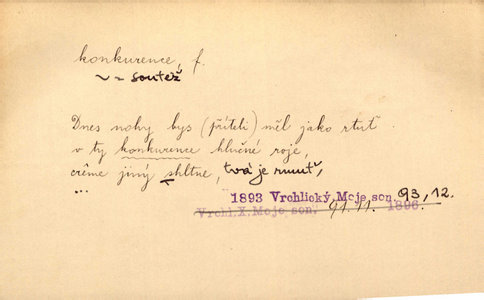 konkurence, f.
~ = soutěž
Dnes nohy bys (příteli) měl jako rtuť
v ty konkurence hlučné roje,
crême jiný shltne, tvá je rmuť,
...
1893 Vrchlický, Moje son. 93, 12.
Vrchl. X. Moje son. 91.11. 1896.